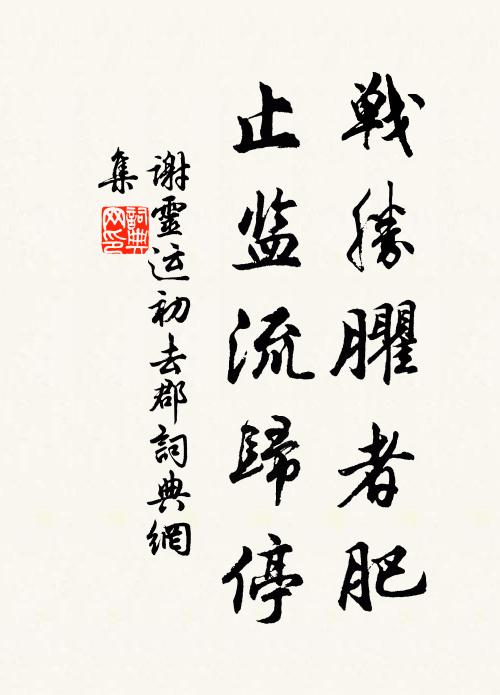 戦勝臞者肥
止监流歸停
謝靈运初去郡詞典網
集
詞典
网印